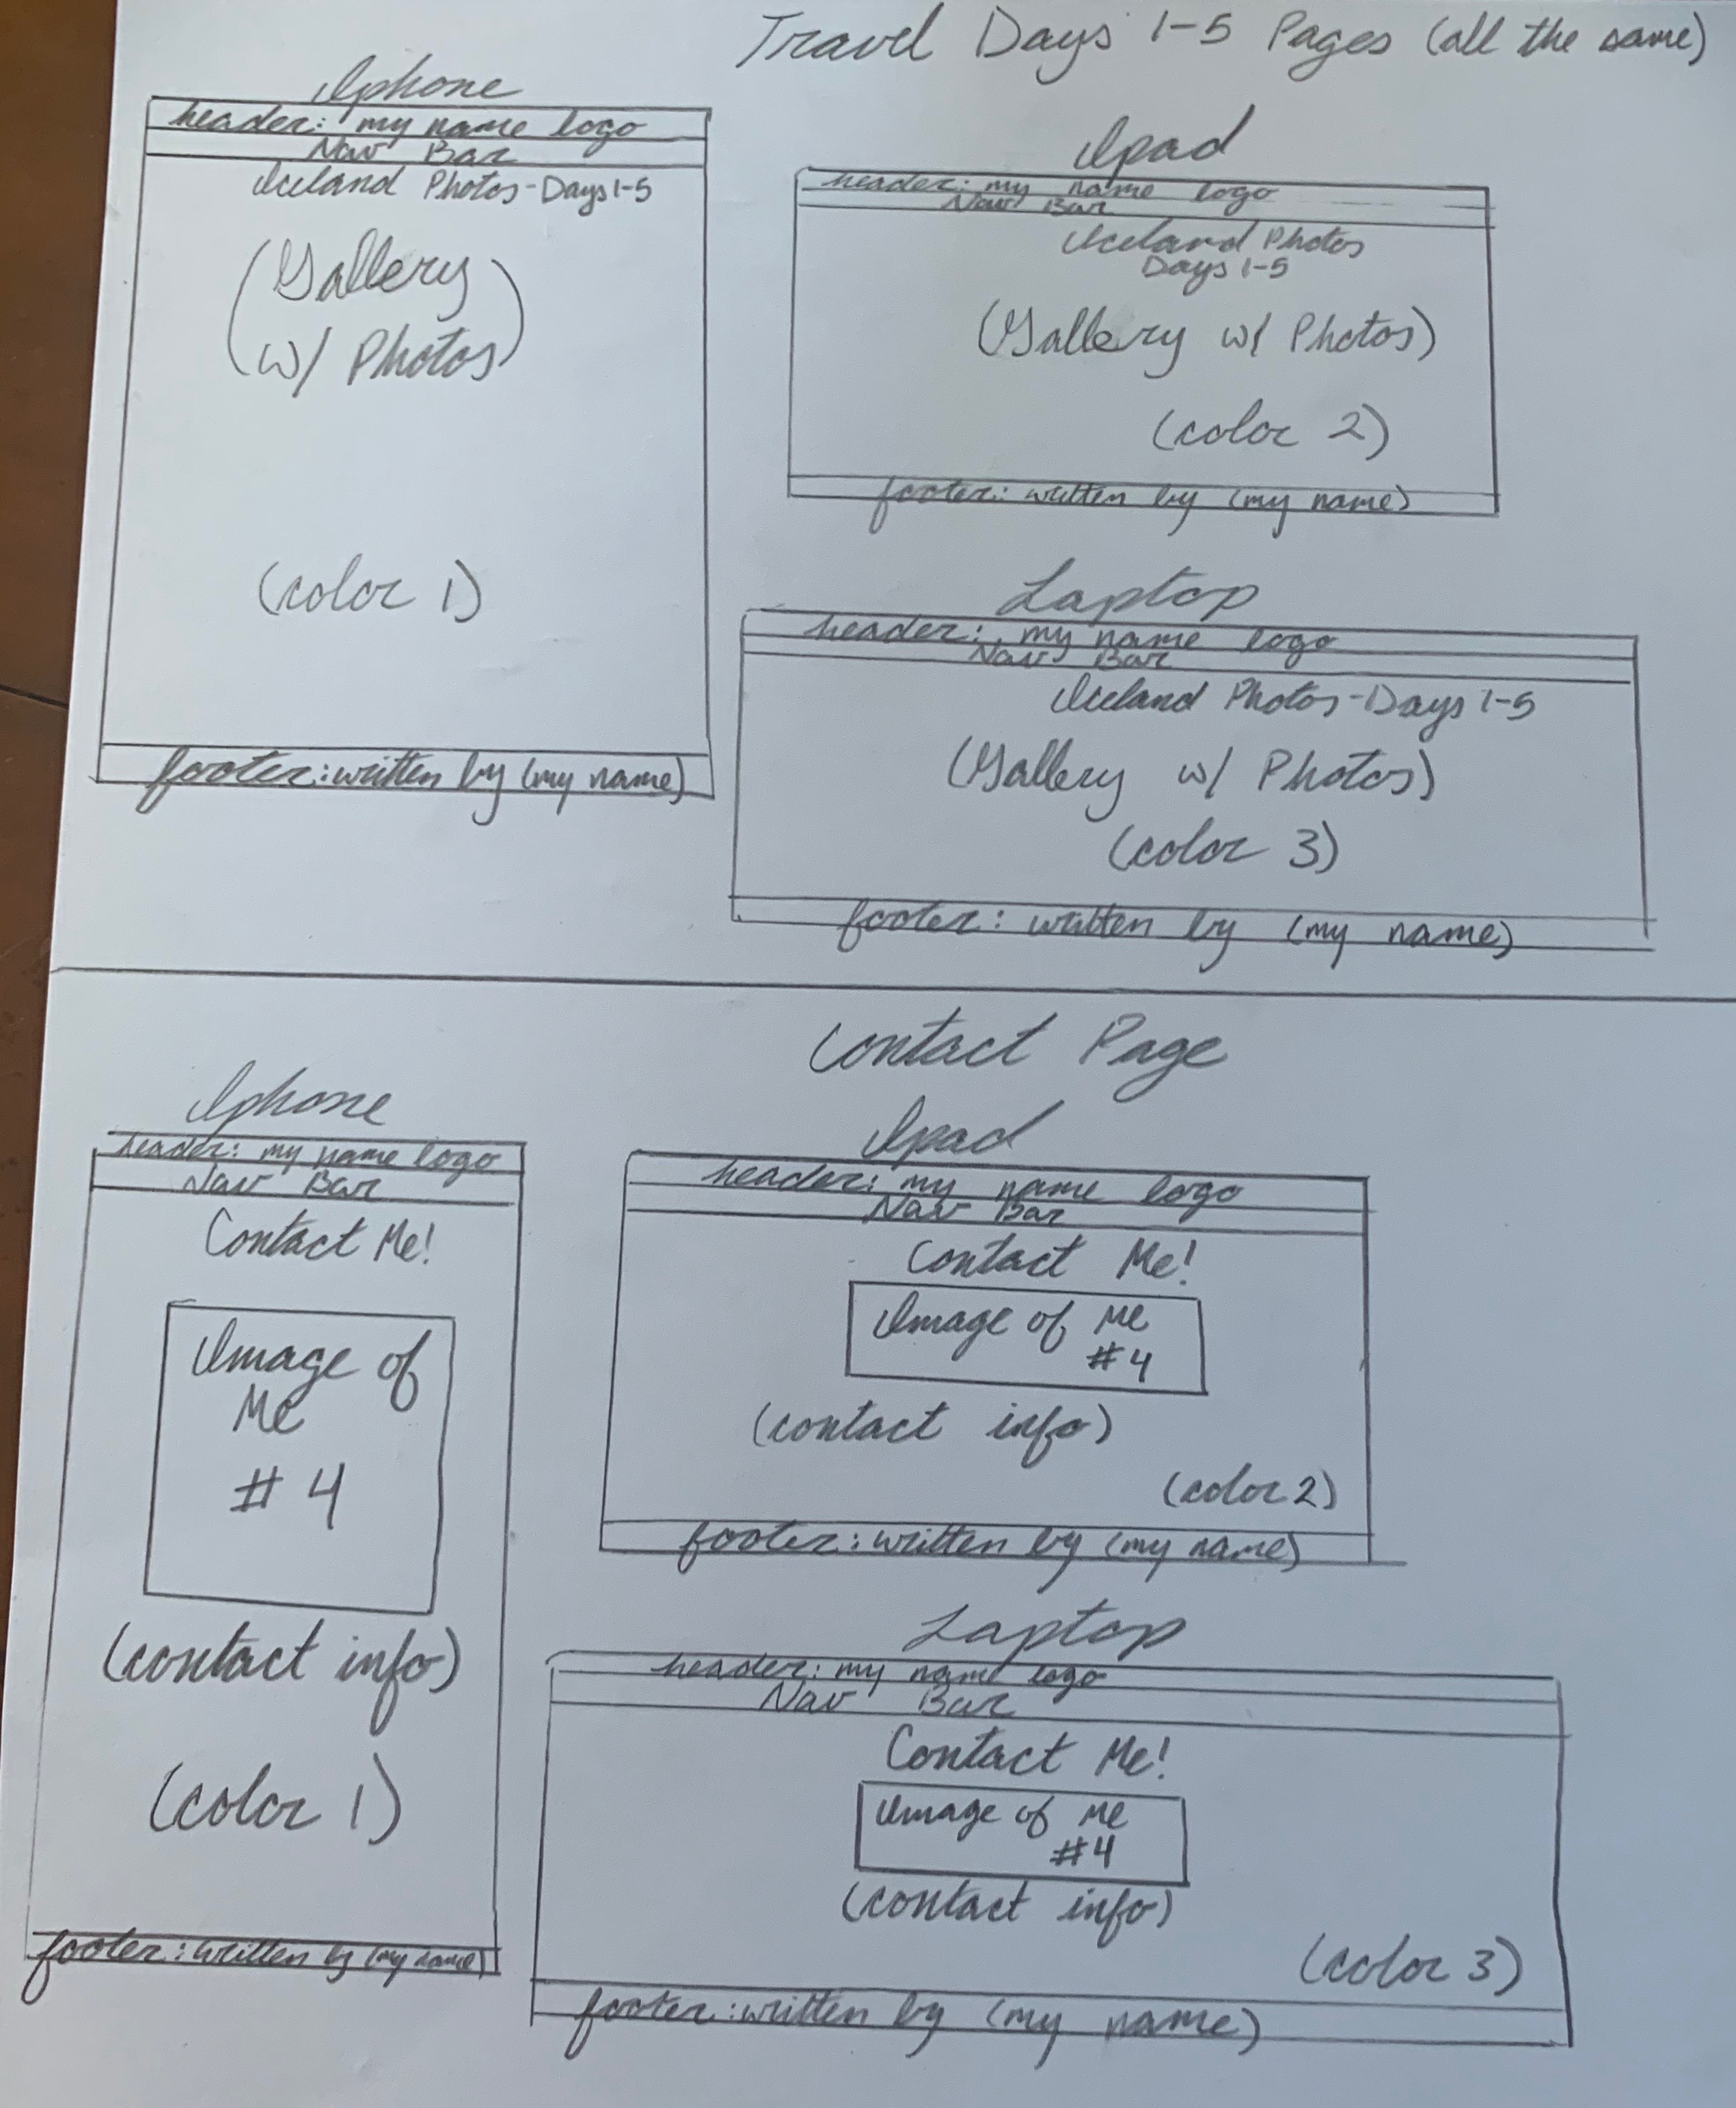 Travel Days 1-5 Pages (all the same)
Iphone
header: my name logo
Nav Bar
Iceland Photos-Days 1-5
(Gallery
w/ Photos)
(color 1)
footer: written by (my name)
Ipad
header: my name logo
Nav Bar
Iceland Photos
Days 1-5
(Gallery w/ Photos)
(color 2)
footer: written by (my name)
Laptop
header: my name logo
Nav Bar
Iceland Photos-Days 1-5
(Gallery w/ Photos)
(color 3)
footer: written by (my name)
Contact Page
Iphone
header: my name logo
Nav Bar
Contact Me!
Image of
Me
#4
(contact info)
(color 1)
footer: written by (my name)
Ipad
header: my name logo
Nav Bar
Contact Me!
Image of Me
#4
(contact info)
(color 2)
footer: written by (my name)
Laptop
header: my name logo
Nav Bar
Contact Me!
Image of Me
#4
(contact info)
(color 3)
footer: written by (my name)